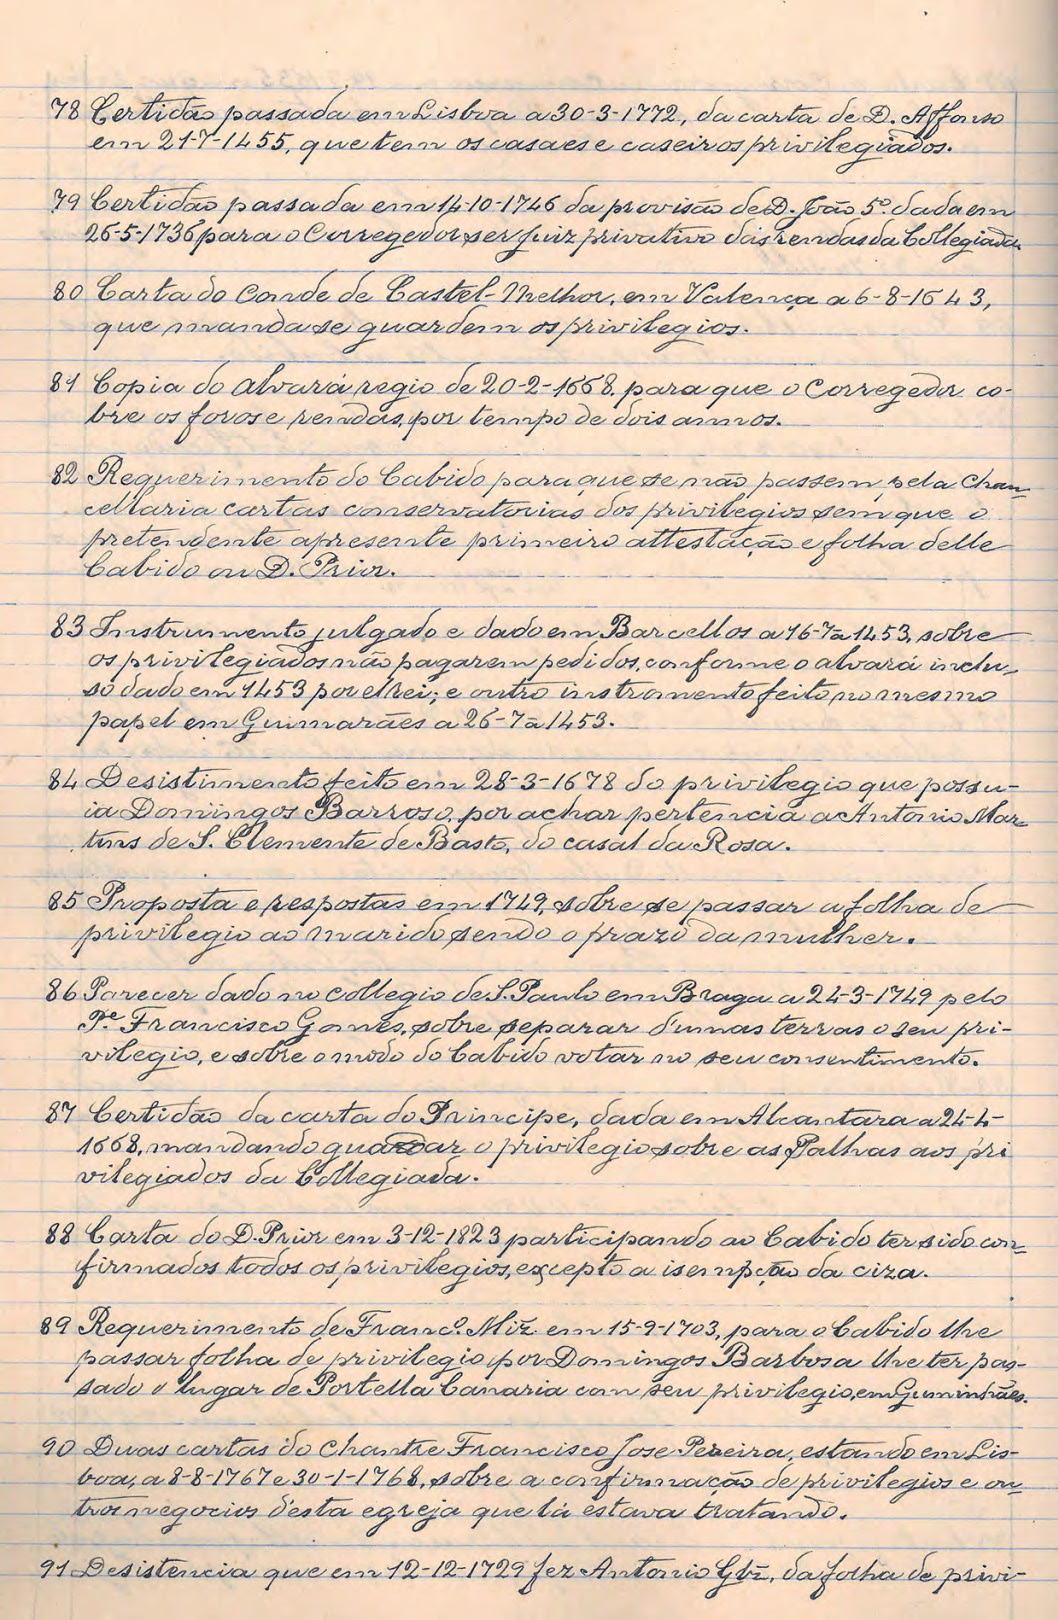 78 Certidão passada em Lisboa a 30-3-1772, da carta de D. Affonso
em 21-7-1455, que tem os casaes e caseiros privilegiados.
79 Certidão passada em 14-10-1746 da provisão de D. João 5º. dada em
26-5-1736 para o Corregedor ser Juiz privativo das rendas da Collegiada
80 Carta do Conde de Castel-Melhor, em Valença a 6-8-1643,
que manda se guardem os privilegios.
81 Copia do alvará regio de 20-2-1668. para que o Corregedor co-
bre os foros e rendas, por tempo de dois annos.
82 Requerimento do Cabido para que se não passem, pela Chan-
cellaria cartas conservatorias dos privilegios sem que o
pretendente apresente primeiro attestação e folha delle
Cabido ou D. Prior.
83 Instrumento julgado e dado em Barcellos a 16-7-1453, sobre
os privilegiados não pagarem pedidos, conforme o alvará inclu-
so dado em 1453 por el rei; e outro instromento feito no mesmo
papel em Guimarães a 26-7-1453.
84 Desistimento feito em 28-3-1678 do privilegio que possu-
ia Domingos Barroso, por achar pertencia a Antonio Mar-
tins de S. Clemente de Basto, do casal da Rosa.
85 Proposta e respostas em 1749, sobre se passar a folha de
privilegio ao marido sendo o prazo da mulher.
86 Parecer dado no collegio de S. Paulo em Braga a 24-3-1749 pelo
Pe. Francisco Gomes, sobre separar d'umas terras o seu pri-
vilegio, e sobre o modo do Cabido votar no seu consentimento.
87 Certidão da carta do Principe, dada em Alcantara a 24-4-
1668, mandando guardar o privilegio sobre as Palhas aos pri
vilegiados da Collegiada.
88 Carta do D. Prior em 3-12-1823 participando ao Cabido ter sido con-
firmados todos os privilegios, excepto a isempção da ciza.
89 Requerimento de Francº. Miz. em 15-9-1703, para o Cabido lhe
passar folha de privilegio por Domingos Barbosa lhe ter pas-
sado o lugar de Portella Canaria com seu privilegio, em Guminhães.
90 Duas cartas do Chantre Francisco Jose Pereira, estando em Lis-
boa, a 8-8-1767 e 30-1-1768, sobre a confirmação de privilegios e ou-
tros negocios d'esta egreja que lá estava tratando.
91 Desistencia que em 12-12-1729 fez Antonio Glz., da folha de privi-